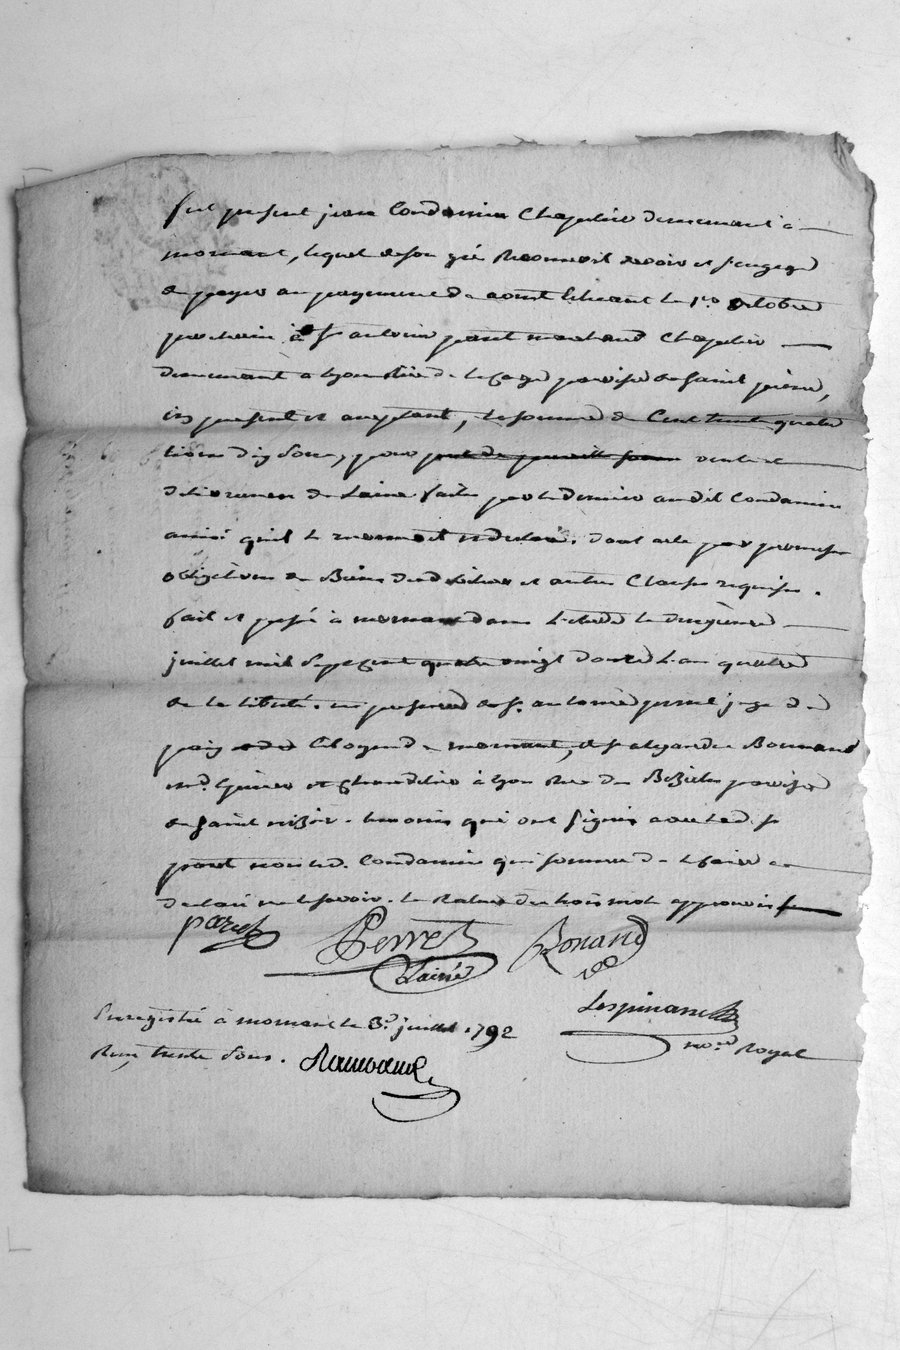 fut present jean Condamin Chapelier demeurant à
mornant, lequel de son gré Reconnoit devoir et s'engage
de payer au payement d'aoust suivant le 1er octobre
prochain à sr antoine paret marchand Chapelier
demeurant a Lyon Rue de la Cage paroisse de saint pierre,
icy present et acceptant, la somme de Cent trente quatre
livres dix sous, pour vente et
délivrance de Laine faite par le dernier audit Condamin
ainsi qu'il le reconnoit . dont acte par promesse
obligations de Biens et autres Clauses requises.
fait et passé à mornant dans L'etude le deuxieme
juillet mil sept cent quatre vingt douze L'an quatre
de la liberté. en presence de sr. antoine perret juge de
paix Citoyen de mornant, et sr alexandre Bonnand
md. Epicier et Chandelier à Lyon Rue
de saint nizier. temoins qui ont signés avec led. sr
paret non led. Condamin qui sommé de le faire a
declaré ne le savoir. la Rature de trois mots approuvée
paret Perret Bonand
L'ainé
Lespinasse
no.re Royal
Enregistré à mornant le 3e. juillet 1792
Reçu trente sous.